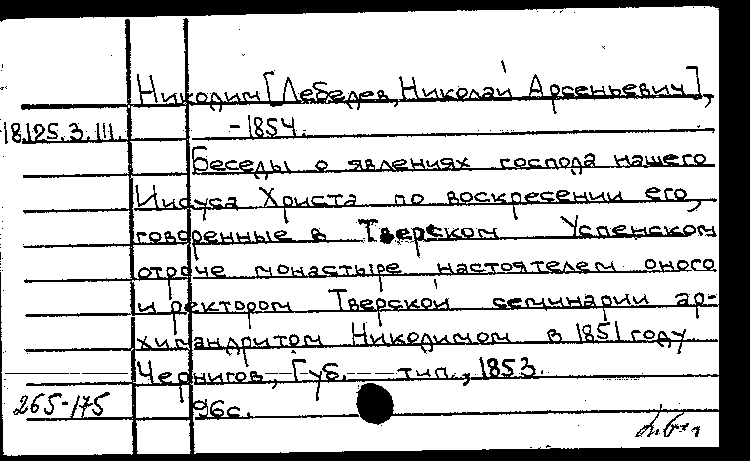 Никодим [Лебедев, Николай Арсеньевич],
18.125.3.111. -1854.
Беседы о явлениях господа нашего
Иисуса Христа по воскресении его,
говоренные в Тверском Успенском
отроче монастыре настоятелем оного
и ректором Тверской семинарии ар-
химандритом Никодимом в 1851 году
Чернигов, Губ. тип., 1853.
265-175 96с.